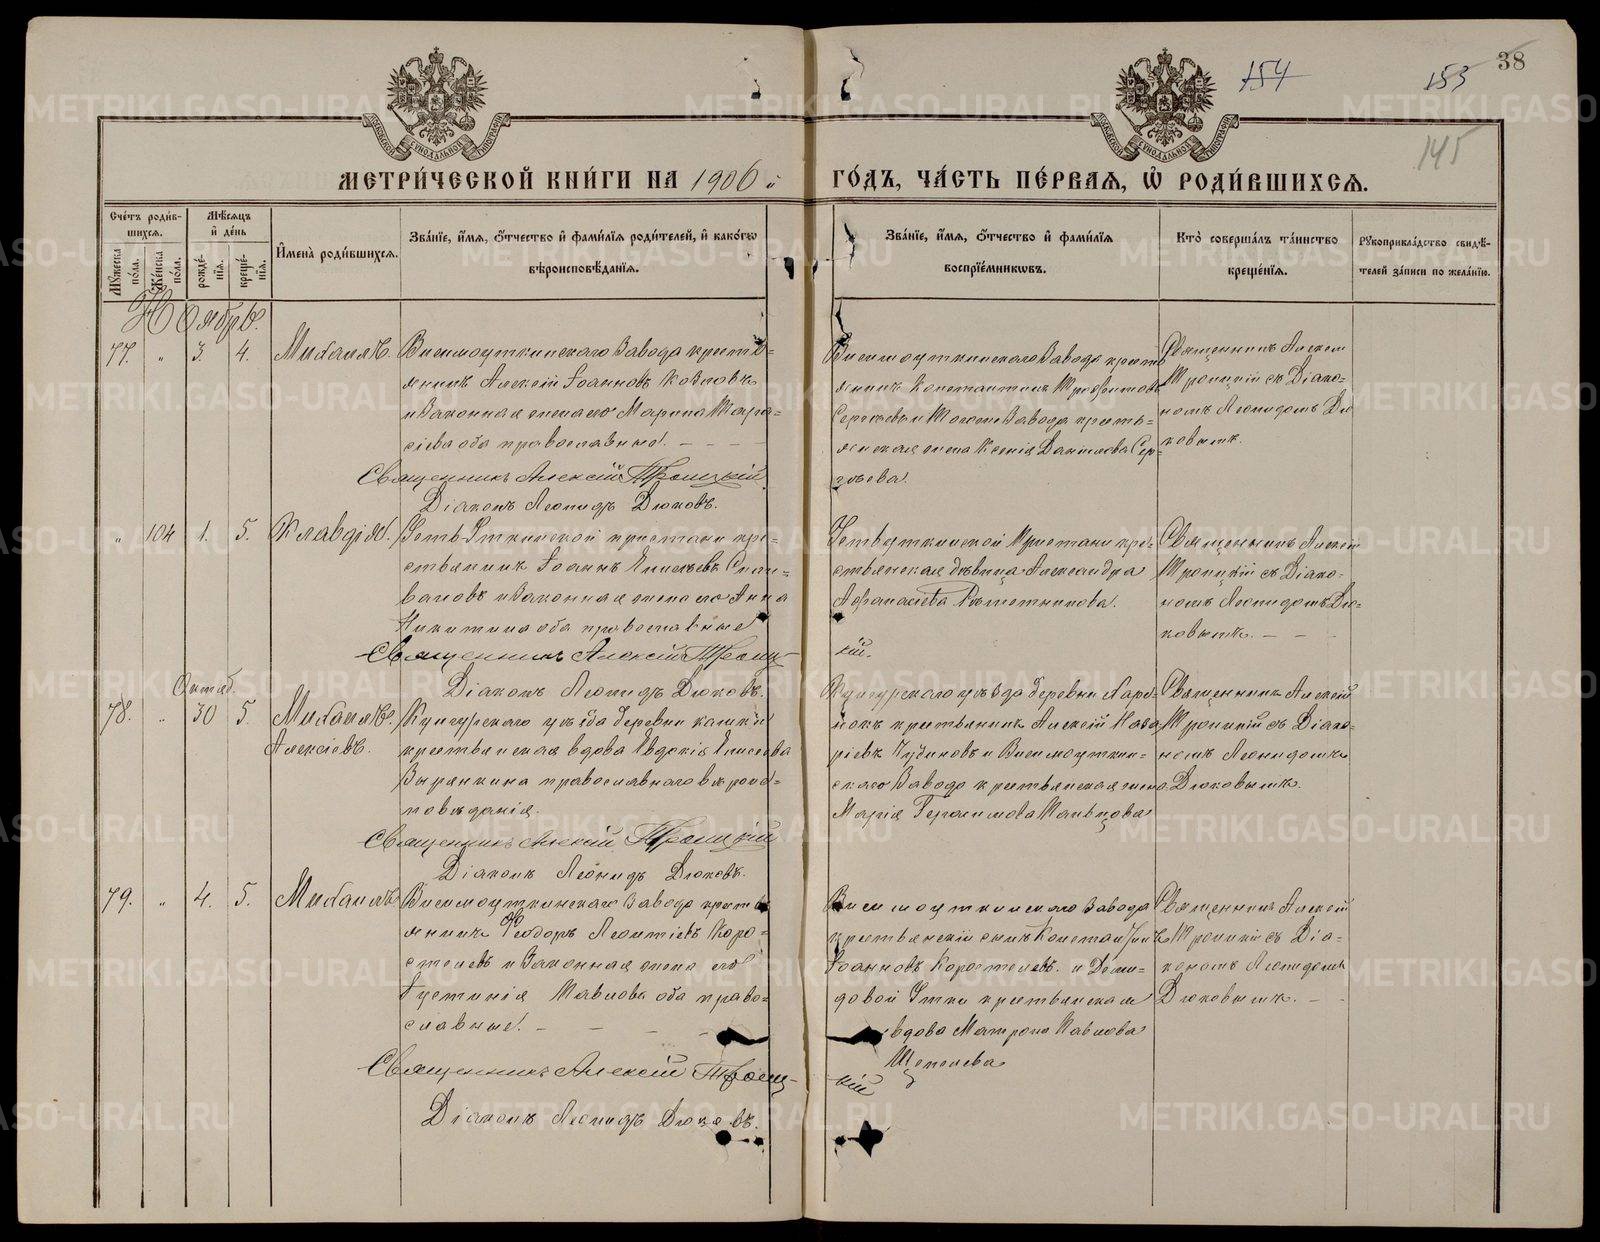 38
154
153
145
МЕТРИ́ЧЕСКОЙ КНИ́ГИ НА 1906 й ГО́ДЪ, ЧА́СТЬ ПЕ́РВАЯ, Ѡ РОДИ́ВШИХСЯ.
Сче́тъ роди́вшихся.
Мѣ́сяцъ и де́нь
Му́жеска по́ла.
Же́нска по́ла.
рожде́нїя.
креще́нїя.
Имена̀ роди́вшихся.
Зва́нїе, и́мя, о́тчество и фами́лїя роди́телей, и како́гѡ вѣроисповѣ́данїя.
Зва́нїе, и́мя, о́тчество и фами́лїя воспрїе́мниковъ.
Кто̀ соверша́лъ та́инство креще́нїя.
Рукоприкла́дство свидѣ́телей за́писи по жела́нїю.
Ноябрь.
77. „ 3. 4. Михаилъ.
Висимоуткинскаго Завода кресть-
янинъ Алексій Іоанновъ Козловъ
и Законная жена его Марина Тара-
сіева оба православные.
Священникъ Алексій Троицкій
Діаконъ Леонидъ Дюковъ.
Висимоуткинскаго Завода кресть
янинъ Константинъ Трофимовъ
Сергѣевъ и Того же Завода кресть-
янская жена Ксенія Данилова Сер-
гѣева.
Священникъ Алексій
Троицкій съ Діако-
номъ Леонидомъ Дю
ковымъ.
„ 104 1. 5. Клавдія.
Усть-Уткинской пристани кре-
стьянинъ Іоаннъ
и Законная жена его Анна
Никитина оба православные
Священникъ Алексій Троиц-
кій.
Діаконъ Леонидъ Дюковъ.
Устьуткинской Пристани кре-
стьянская дѣвица Александра
Афанасіева Рѣшетникова.
Священникъ Алексій
Троицкій съ Діако-
номъ Леонидомъ Дю-
ковымъ.
Октяб.
78. „ 30 5. Михаилъ.
Алексіевъ.
Кунгурскаго уѣзда деревни
крестьянская вдова Евдокія Елисеева
Зырянкина православнаго вѣроис-
повѣданія.
Священникъ Алексій Троицкій
Діаконъ Леонидъ Дюковъ.
Кунгурскаго уѣзда деревни
крестьянинъ Алексій Наза
ріевъ и Висимоуткин-
скаго Завода крестьянская жена
Марія Герасимова Мальцова
Священникъ Алексій
Троицкій съ Діако-
номъ Леонидомъ
Дюковымъ.
79. „ 4. 5. Михаилъ
Висимоуткинскаго Завода кресть
янинъ Ѳеодоръ Леонтіевъ Коро-
стелевъ и Законная жена его
Іустинія Павлова оба право-
славные.
Священникъ Алексій Троиц-
кій
Діаконъ Леонидъ Дюковъ.
Висимоуткинскаго Завода
крестьянскій сынъ Константинъ
Іоанновъ Коростелевъ. и Деми-
довой Утки крестьянская
вдова Матрона Павлова
Щепелева
Священникъ Алексій
Троицкій съ Діа-
кономъ Леонидомъ
Дюковымъ.
METRIKI.GASO-URAL.RU